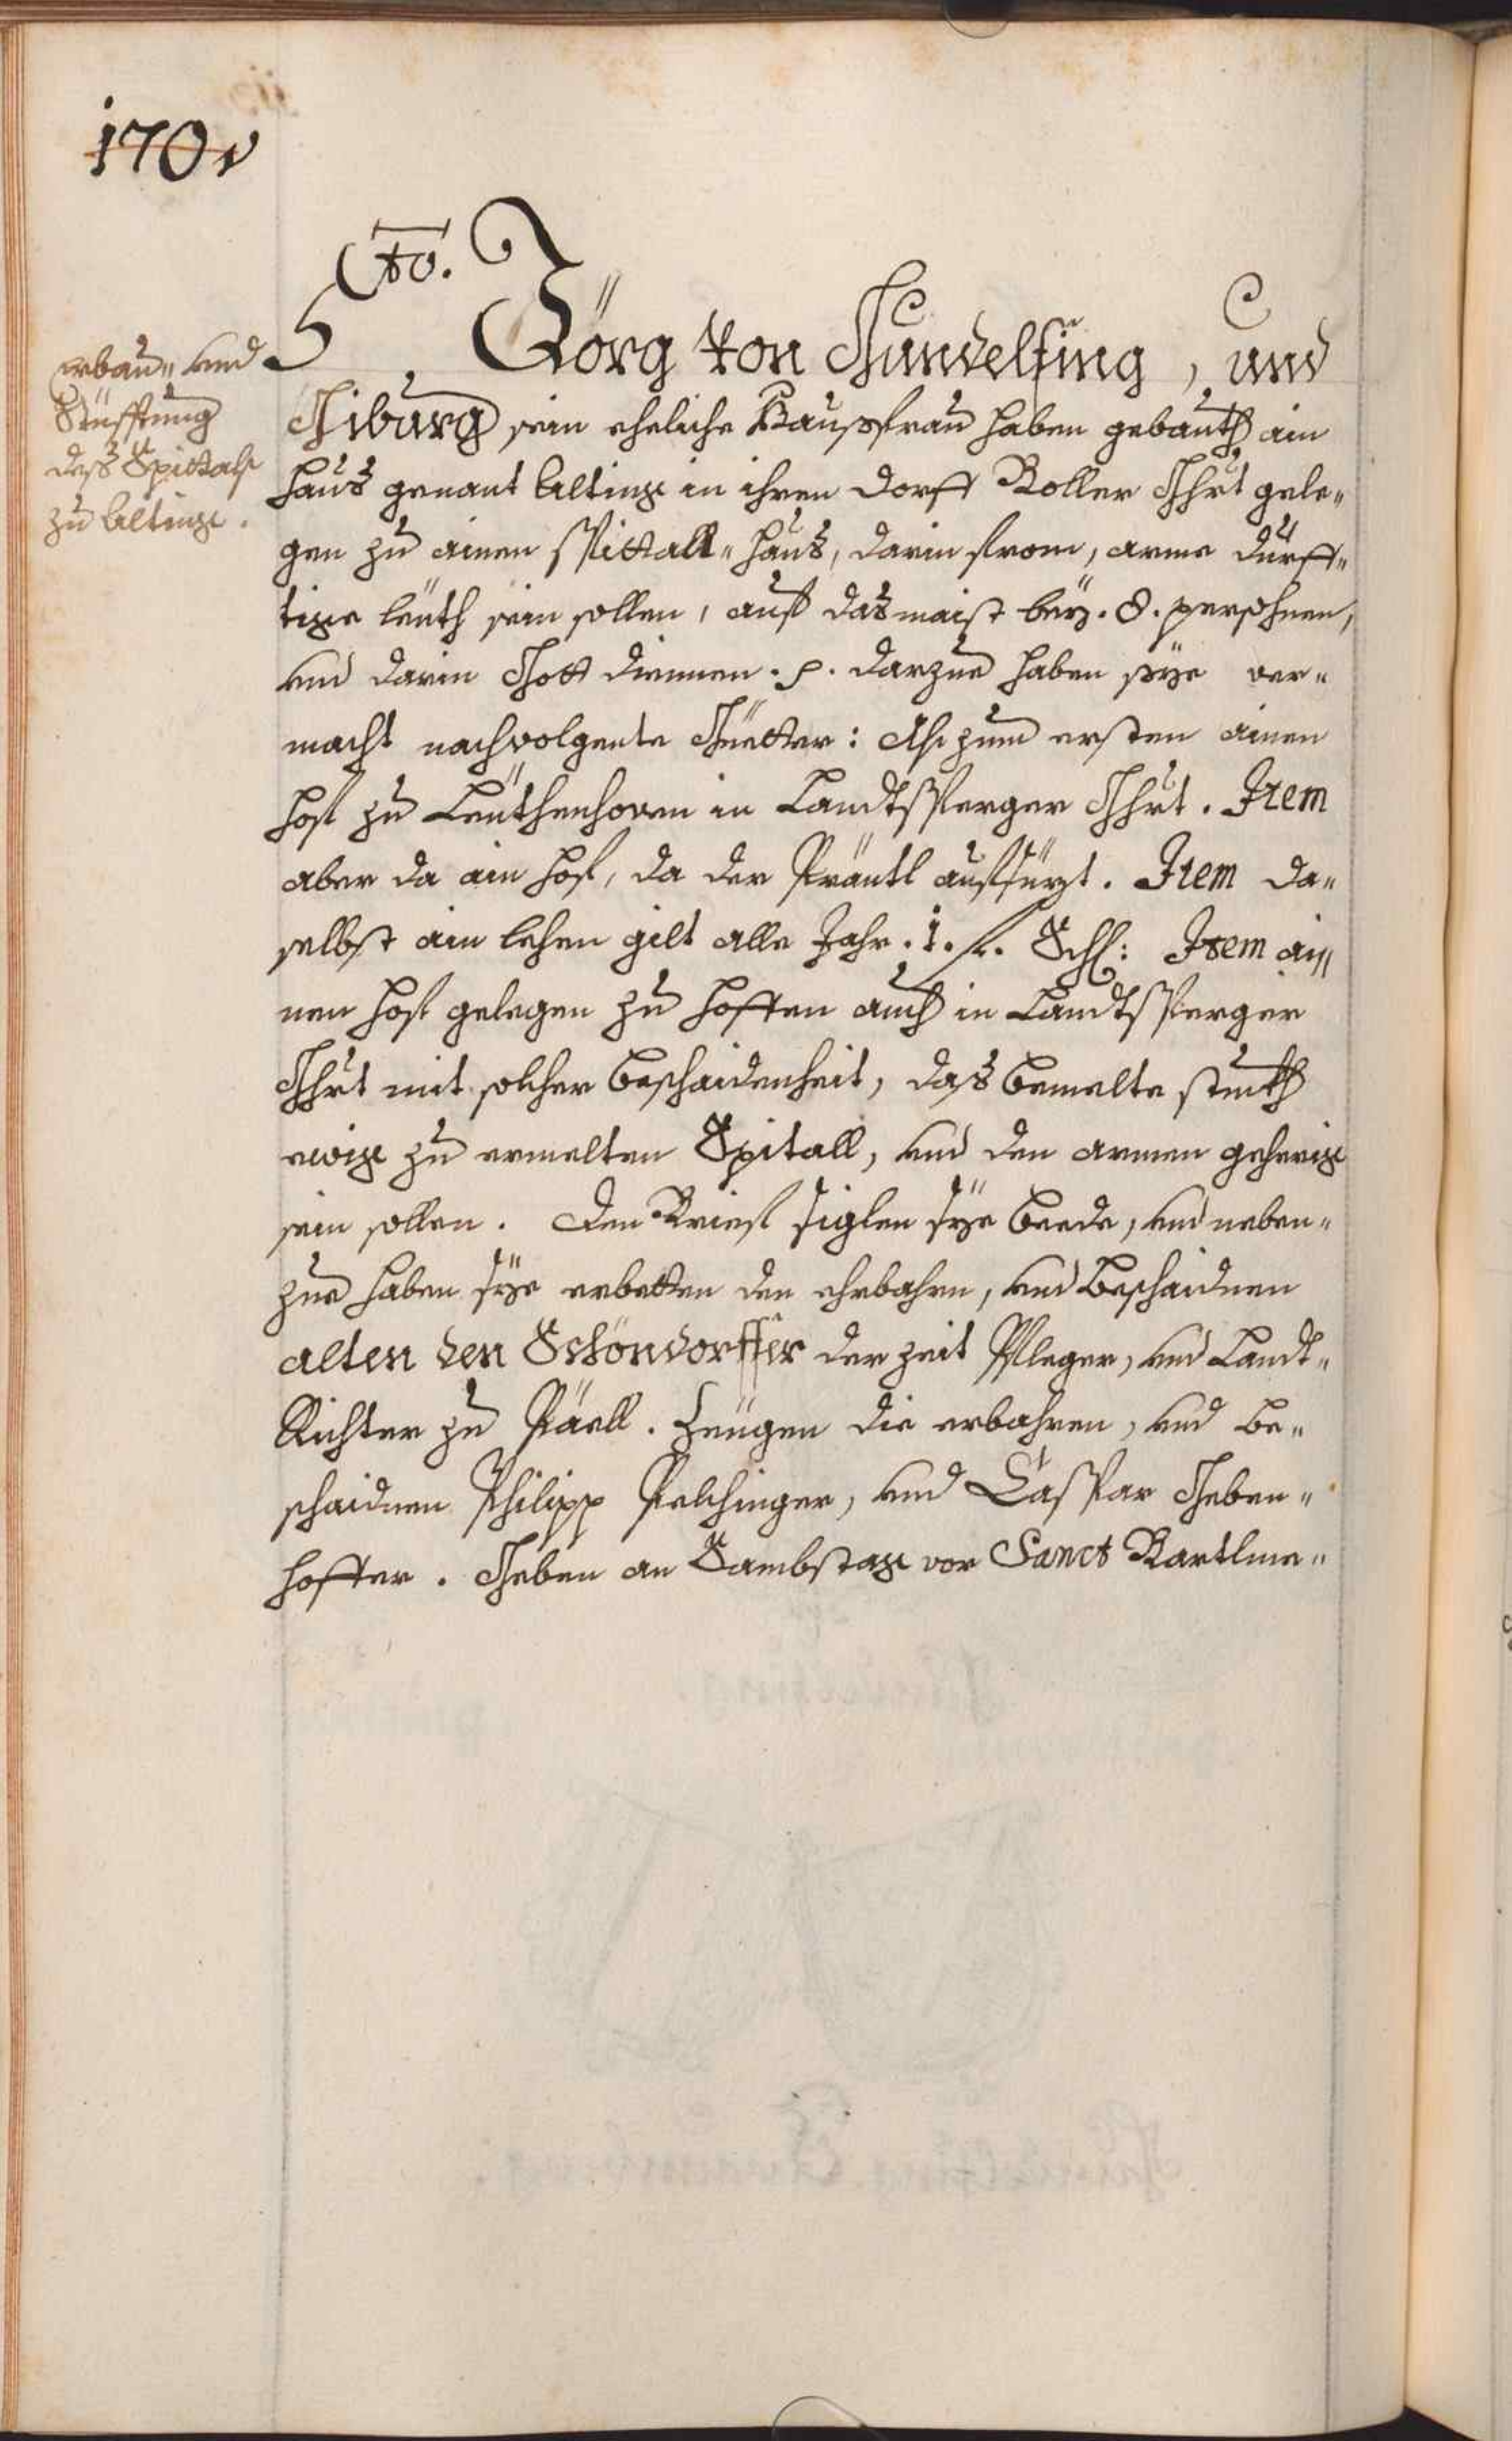 170v
5to. Jörg von Gundelfing, und
Giburg sein eheliche Haußfrau haben gebauth ain
haus genant Alting in ihren dorff Boller Ghrt gele„
gen zu ainen Spittall„haus, darin from, arme dürff„
tige leüth sein sollen, auf das maist bey .8. persohnen,
und darin Gott diennen. p. darzue haben sye ver„
macht nachvolgente Güetter: Als zum ersten ainen
hof zu Leüthenhoven in Landtsperger Ghrt. Item
aber da ain hof, da der Präntl aufsüzt. Item da„
selbst ain lehen gilt alle Jahr .1. fl. Schl: Item ai„
nen hof gelegen zu hoffen auch in Landtsperger
Ghrt mit solcher bescheidenheit, das bemelte stuckh
ewig zu ermelten Spitall, und den armen geherig
sein sollen. den Brief siglen sye beede, und neben„
zue haben sye erbetten den ehrbahrn, und beschaidnen
alten den Schöndorffer der zeit Pfleger, und Landt„
Richter zu Päell. Zeügen die erbahren, und be„
schaidnen Philipp Pelchinger, und Caspar Geben„
hoffer. Geben an Sambstag vor Sanct Bartlme„
erbau„ und
Stüfftung
deß Spittals
zu Alting.